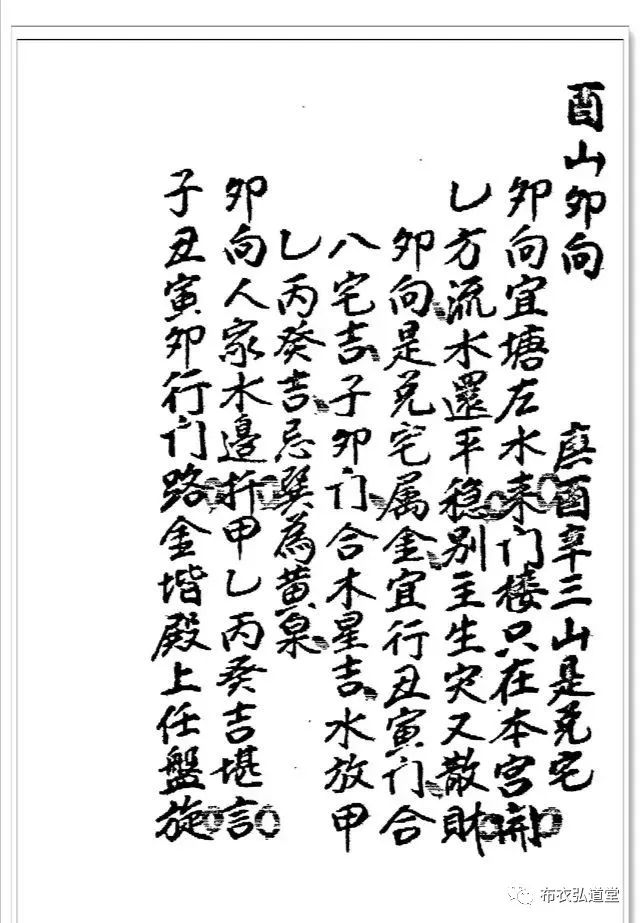 酉山卯向 庚酉辛三山是兑宅
卯向宜塘左水来门楼只在本宫開
乚方流水還平穏别主生灾又散財
卯向是兑宅属金宜行丑寅门合
八宅吉子卯门合木星吉水放甲
乚丙癸吉忌巽為黄泉
卯向人家水邊扦甲乚丙癸吉堪言
子丑寅卯行门路金堦殿上任盤旋
布衣弘道堂